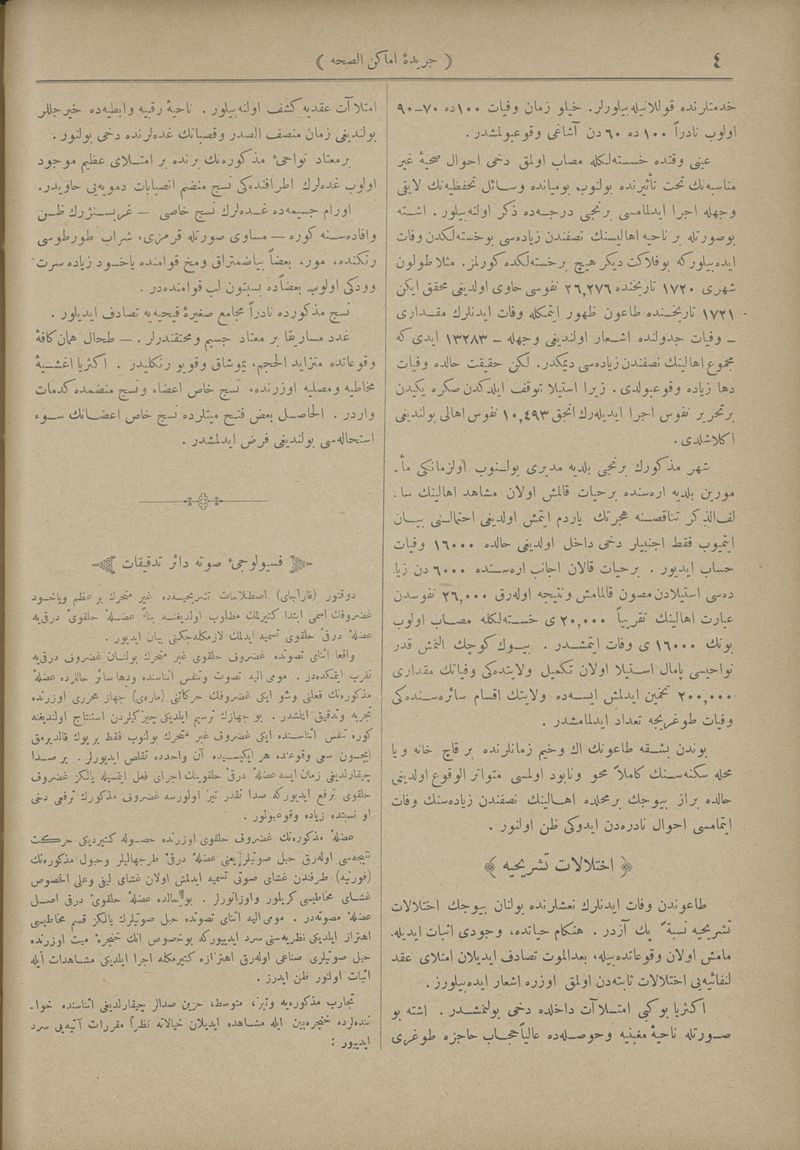 ٤
( جريدۀ اماكن الصحه )
خدمتلرنده قوللانيله بيلورلر. خيلو زمان وفيات ١٠٠ ده ٧٠–٩٠
اولوب نادراً ١٠٠ ده ٦٠ دن آشاغى وقوعبولمشدر .
عينى وقتده خستهلكله مصاب اولمق دخى احوال صحيۀ غير
مناسبه‌نك تحت تأثيرنده بولنوب بوميانده وسائل تحفظيه‌نك لايقى
وجهله اجرا ايدلمامسى برنجى درجه‌ده ذكر اولنه‌بيلور . اشته
بوصورتله بر ناحيه اهاليسنك نصفندن زياده‌سى بوخسته‌لكدن وفات
ايده‌بيلوركه بوفلاكت ديكر هيچ برخسته‌لكده كورلمز. مثلا طولون
شهرى ١٧٢٠ تاريخنده ٢٦,٢٧٦ نفوسى حاوى اولديغى محقق ايكن
١٧٢١ تاريخنده طاعون ظهور ايتمكله وفات ايدنلرك مقدارى
– وفيات جدولنده اشعار اولنديغى وجهله – ١٣٢٨٣ ايدى كه
مجموع اهالينك نصفندن زياده‌سى ديمكدر. لكن حقيقت حالده وفيات
دها زياده وقوعبولدى. زيرا استيلا توقف ايلدكدن صكره يكيدن
برتحرير نفوس اجرا ايديله‌رك انجق ١٠,٤٩٣ نفوس اهالى بولنديغى
اكلاشلدى.
شهر مذكورك برنجى بلديه مديرى بولنوب اولزمانكى مأ-
مورين بلديه اره‌سنده برحيات قالمش اولان مشاهد اهالينك سا-
لف‌الذكر تناقصنه هجرتك ياردم ايتمش اولديغى احتمالنى بيان
ايتميوب فقط اجنبيلر دخى داخل اولديغى حالده ١٦٠٠٠ وفيات
حساب ايديور . برحيات قالان اجانب اره‌سنده ٦٠٠٠ دن زيا-
ده‌سى استيلادن مصون قالمامش ونتيجه اوله‌رق ٢٦,٠٠٠ نفوسدن
عبارت اهالينك تقريباً ٢٠,٠٠٠ ى خسته‌لكله مصاب اولوب
بونك ١٦٠٠٠ ى وفات ايتمشدر . بيوك كوچك التمش قدر
نواحيسى پامال استيلا اولان تكميل ولايتده‌كى وفياتك مقدارى
٢٠٠,٠٠٠ تخمين ايدلمش ايسه‌ده ولايتك اقسام سائره‌سنده‌كى
وفيات طوغريجه تعداد ايدلمامشدر .
بوندن بشقه طاعونك اك وخيم زمانلرنده بر قاچ خانه و يا
محله سكنه‌سنك كاملاً محو ونابود اولمسى متواتر الوقوع اولديغى
حالده براز بيوجك برمحلده اهالينك نصفندن زياده‌سنك وفات
ايتمامسى احوال نادره‌دن ايدوكى ظن اولنور .
﴿ اختلالات تشريحيه ﴾
طاعوندن وفات ايدنلرك نعشلرنده بولنان بيوجك اختلالات
تشريحيه نسبةً پك آزدر . هنكام حياتده، وجودى اثبات ايديله-
مامش اولان وقوعاتده‌بيله، بعدالموت تصادف ايديلان امتلاى عقد
لنفائيه‌يى اختلالات ثابته‌دن اولمق اوزره اشعار ايده‌بيلورز.
اكثريا بوكى امتلاآت داخلده دخى بولنمشدر . اشته بو
صورتله ناحيۀ مغبنيه وحوصله‌ده عالياً حجاب حاجزه طوغرى
امتلاآت عقديه كشف اولنه‌بيلور . ناحيۀ رقبيه وابطيه‌ده خيرجللر
بولنديغى زمان منصف الصدر وقصباتك غده‌لرنده دخى بولنور .
برمعتاد نواحئ مذكوره‌نك برنده بر امتلاى عظيم موجود
اولوب غده‌لرك اطرافنده‌كى نسج منضم انصبابات دمويه‌يى حاويدر.
اورام جسيمه‌ده غده‌لرك نسج خاصى – غريسنژرك ظن
وافاده‌سنه كوره – مساوى صورتله قرمزى، شراب طورطوسى
رنكنده، مور، بعضاً بياضمتراق ومخ قوامنده ياخود زياده سرت
وودكى اولوب بعضاًده بستبتون لب قوامنده‌در .
نسج مذكورده نادراً مجامع صغيرۀ قيحيه‌يه تصادف ايديلور .
غدد مساريقا بر معتاد جسيم ومحتقندرلر . – طحال همان كافۀ
وقوعاتده متزايد الحجم، يموشاق وقويو رنكليدر . اكثريا اغشيۀ
مخاطيه ومصليه اوزرنده، نسج خاص اعضاء ونسج منضمده كدمات
واردر . الحاصل بعض فتح ميتلرده نسج خاص اعضانك سوء
استحاله‌سى بولنديغى فرض ايدلمشدر .
فسيولوجئ صوته دائر تدقيقات
دوقتور (قاراباى) اصطلاحات تشريحيه‌ده غير متحرك بر عظم وياخود
غضروفك اسمى ابتدا كتيرلمك مطلوب اولديغنه بناءً عضلۀ حلقوئ درقى‌يه
عضلۀ درقئ حلقوى تسميه ايدلمك لازمكله‌جكنى بيان ايديور .
واقعا اثناى تصوتده غضروف حلقوى غير متحرك بولنان غضروف درقى‌يه
تقرب ايتمكده‌در. مومى اليه تصوت وتنفس اثناسنده ودها سائر حاللرده عضلۀ
مذكوره‌نك فعلنى وشو ايكى غضروفك حركاتنى (ماره‌ى) جهاز محررى اوزرنده
تجربه وتدقيق ايتمشدر . بو جهازك ترسيم ايلديكى چيزكيلردن استنتاج اولنديغنه
كوره تنفس اثناسنده ايكى غضروف غير متحرك بولنوب فقط بر يوك قالديرمق
ايچون سعى وقوعنده هر ايكيسيده آن واحدده تقلص ايديورلر . بر صدا
چيقارلديغى زمان ايسه عضلۀ درقئ حلقوينك اجراى فعل ايتمسيله يالكز غضروف
حلقوى ترفع ايديوركه صدا نقدر تيز اولورسه غضروف مذكورك ترفعى دخى
او نسبتده زياده وقوعبولور .
عضلۀ مذكوره‌نك غضروف حلقوى اوزرنده حصوله كتيرديكى حركت
نتيجه‌سى اوله‌رق حبل صوتيلر يعنى عضلۀ درقئ طرجهاليلر وحبول مذكوره‌نك
(فورنيه) طرفندن غشاى صوتى تسميه ايدلمش اولان غشاى لينى وعلى الخصوص
غشاى مخاطيسى كريلور واوزانورلر . بوحالده عضلۀ حلقوئ درقى اصل
عضلۀ مصوته‌در . مومى اليه اثناى تصوتده حبل صوتيلرك يالكز قسم مخاطيسى
اهتزاز ايلديكى نظريه‌سنى سرد ايدييوركه بوخصوص انك حنجرۀ ميت اوزرنده
حبل صوتيلرى صناعى اوله‌رق اهتزازه كتيرمكله اجرا ايلديكى مشاهدات ايله
اثبات اولنور ظن ايدرز .
تجارب مذكوره‌يه وتيز، متوسط، حزين صدالر چيقارلديغى اثناسنده خوا-
ننده‌لرده حنجره‌بين ايله مشاهده ايديلان خيالاته نظراً مقررات آتيه‌يى سرد
ايدييور :